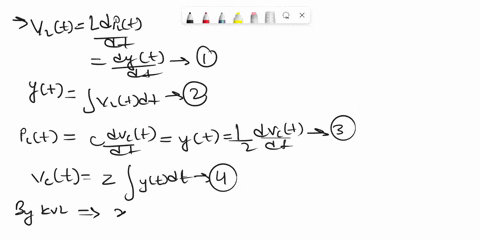 → V₂(t) = 2 dPᵢ(t)/dt
= dy(t)/dt → ①
y(t) = ∫V₂(t)dt → ②
P₍(t) = C dV꜀(t)/dt = y(t) = 1/2 dV꜀(t)/dt → ③
V꜀(t) = 2 ∫y(t)dt → ④
By KVL ⇒ x